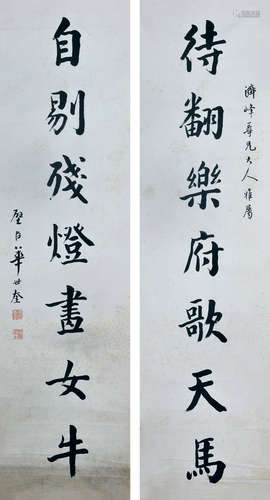 濟峰尊兄大人雅屬
待翻樂府歌天馬
自剔殘燈畫女牛
壁臣華世奎